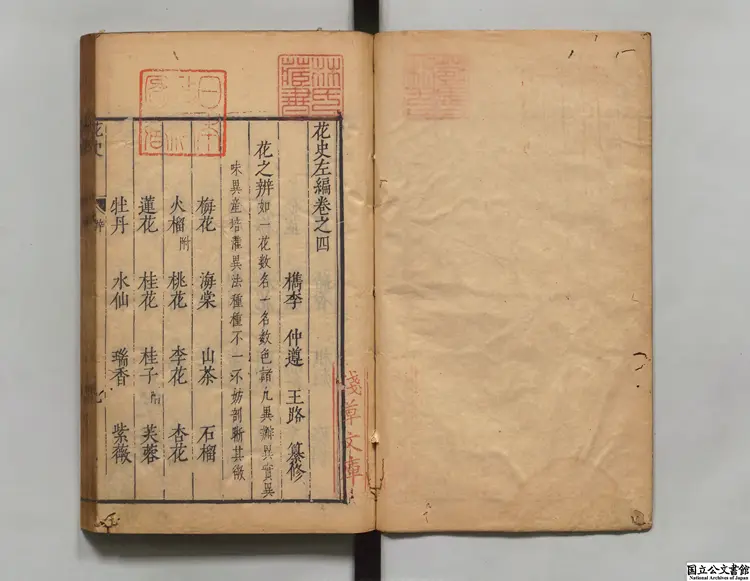 花史左編卷之四
檇李 仲遵 王路 纂修
花之辨 如一花數名一名數色諸凡異瓣異實異
味異産培灌異法種種不一不妨剖晰其微
梅花 海棠 山茶 石榴
火榴附 桃花 李花 杏花
蓮花 桂花 桂子附 芙蓉
牡丹 水仙 瑞香 紫薇
花史
林氏藏書
淺草文庫
国立公文書館
National Archives of Japan